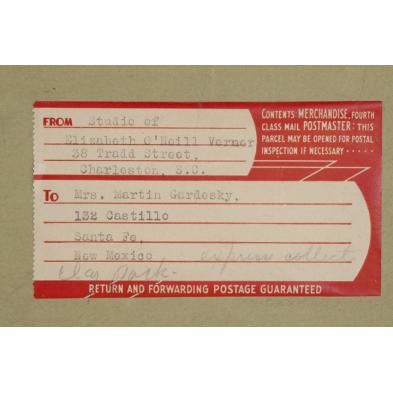 FROM Studio of
Elizabeth O'Neill Verner
38 Tradd Street,
Charleston, S.C.
CONTENTS: MERCHANDISE, FOURTH
CLASS MAIL POSTMASTER: THIS
PARCEL MAY BE OPENED FOR POSTAL
INSPECTION IF NECESSARY · · · · ·
TO Mrs. Martin Gardesky,
132 Castillo
Santa Fe,
New Mexico
express collect
RETURN AND FORWARDING POSTAGE GUARANTEED